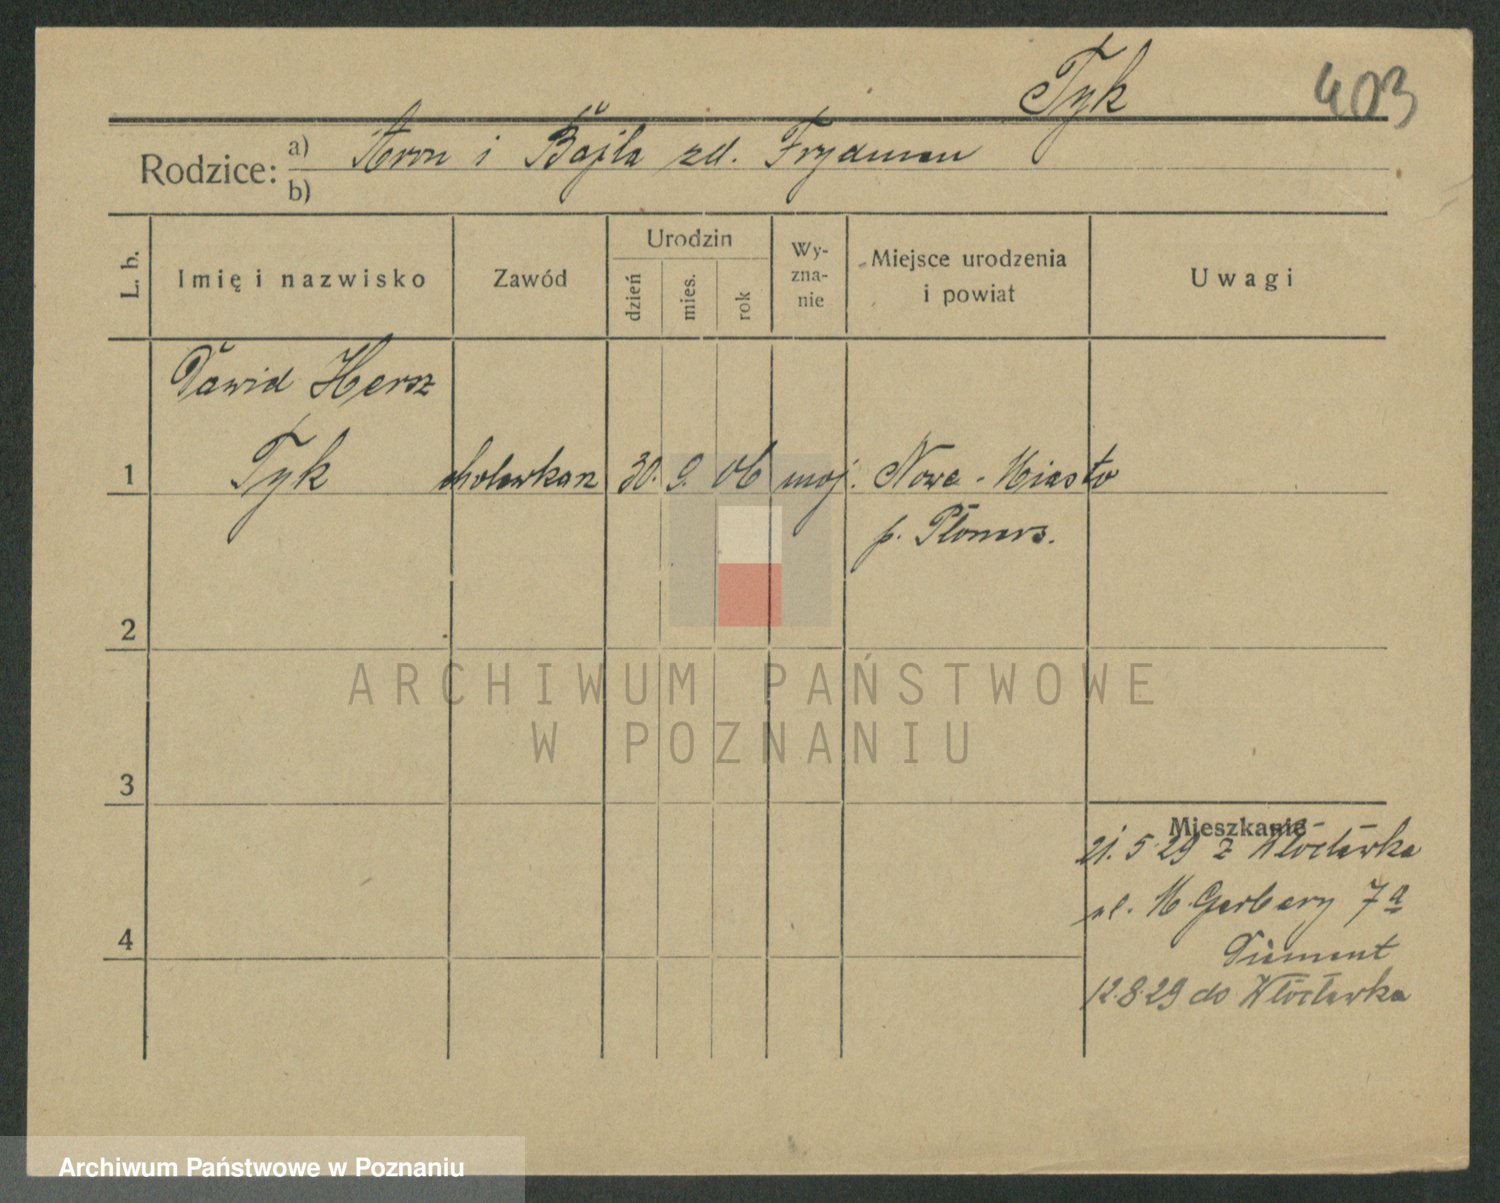 Tyk 403
Rodzice: a) Aron i Bajla zd. Frydman
b)
L. b.
Imię i nazwisko
Zawód
Urodzin
dzień
mies.
rok
Wy-
zna-
nie
Miejsce urodzenia
i powiat
Uwagi
Dawid Hersz
1 Tyk cholewkarz 30. 9. 06 moj. Nowe-Miasto
p. Płońsk.
2
ARCHIWUM PAŃSTWOWE
W POZNANIU
3
Mieszkanie
21.5.29 z Włocławka
ul. M. Garbary 7a
4
12.8.29 do Włocławka
Archiwum Państwowe w Poznaniu